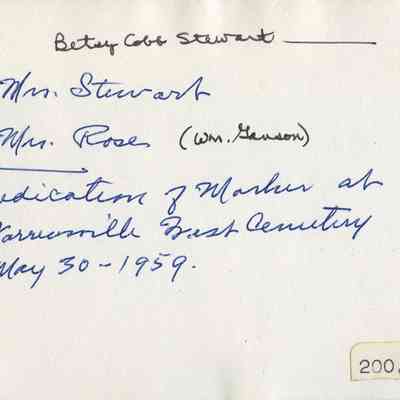 Betsy Cobb Stewart
Mrs. Stewart
Mrs. Rose (Wm. Ganson)
edication of Marker at
East Cemetery
May 30-1959.
200.